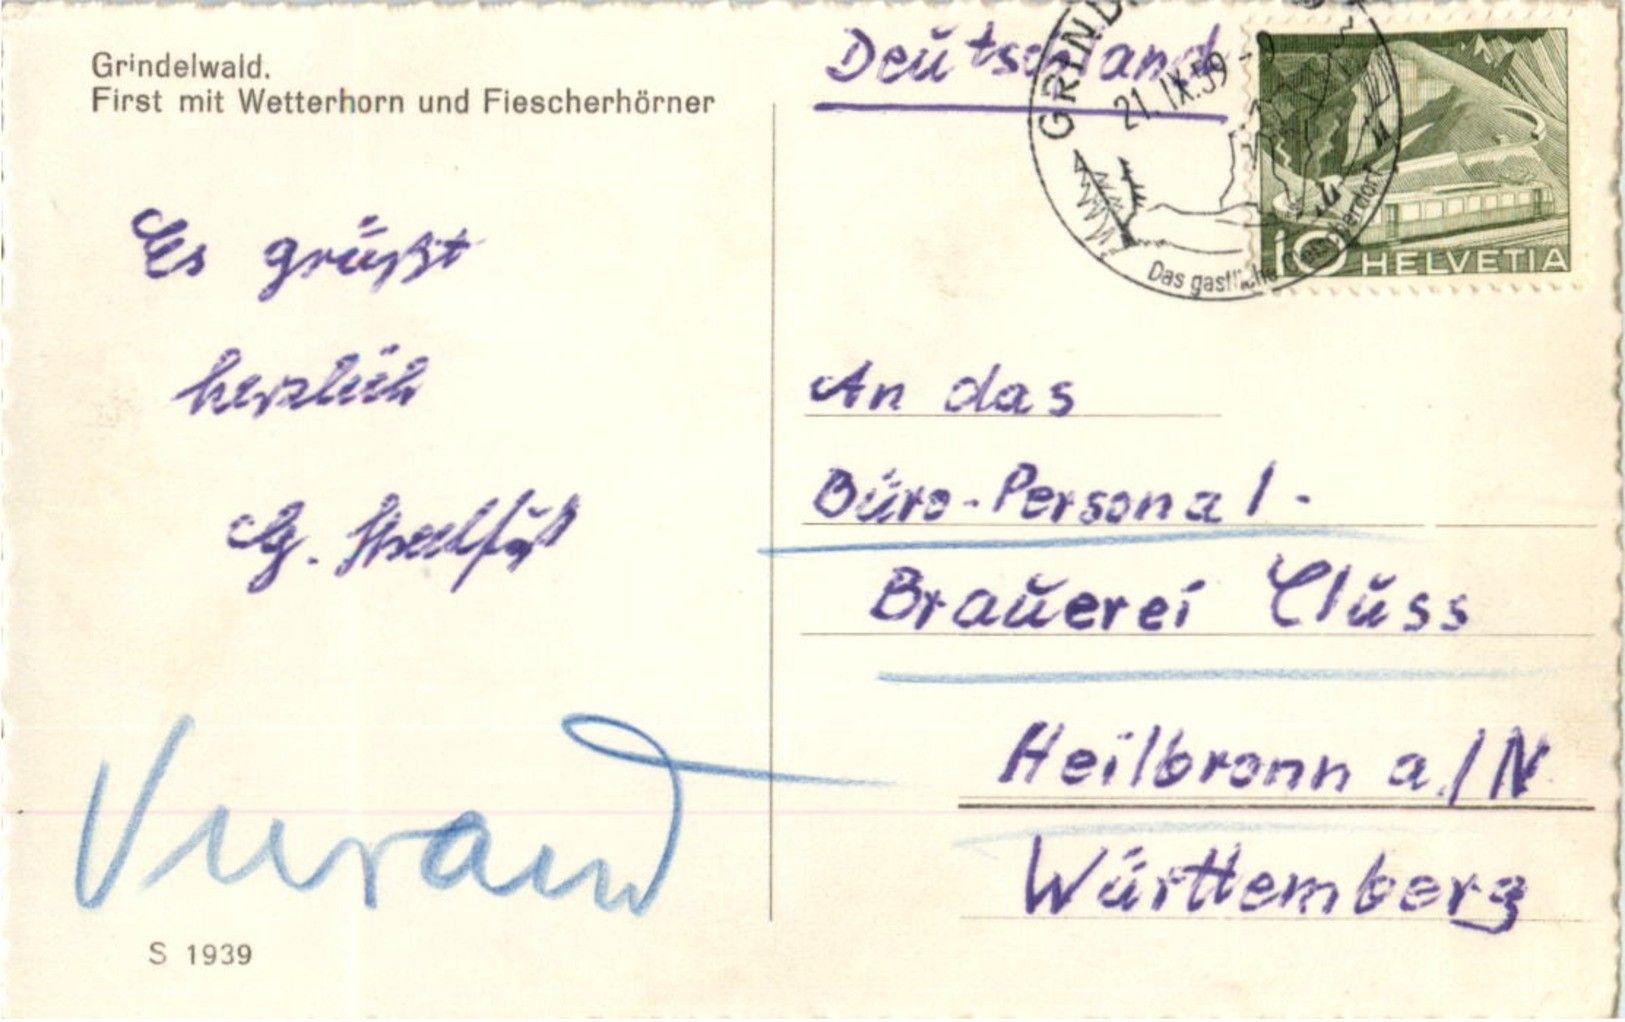 Grindelwald.
First mit Wetterhorn und Fiescherhörner
Es grüßt
herzlich
S 1939
Deutschland
GRIND
21. IX. 59 - 9
Das gastliche Gletscherdorf
10 HELVETIA
An das
Büro-Personal -
Brauerei Cluss
Heilbronn a/N
Württemberg